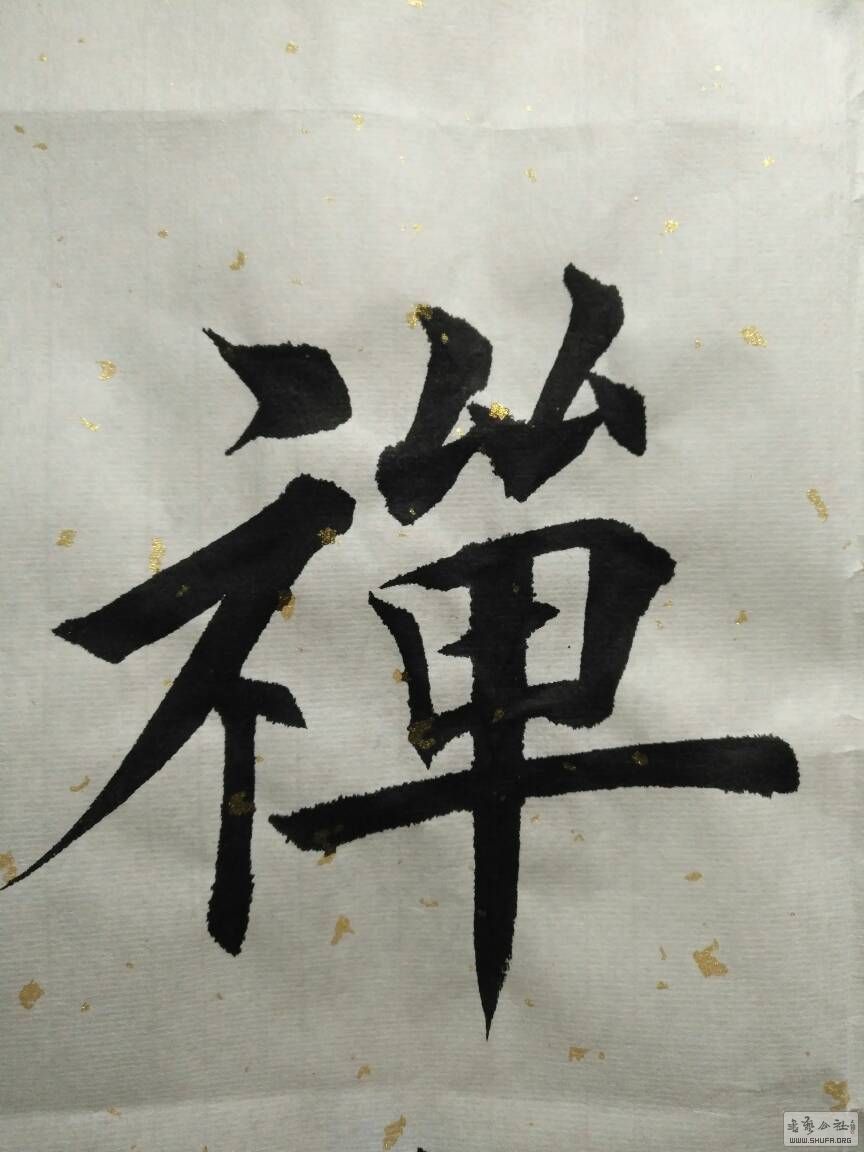 禅
书艺公社
WWW.SHUFA.ORG